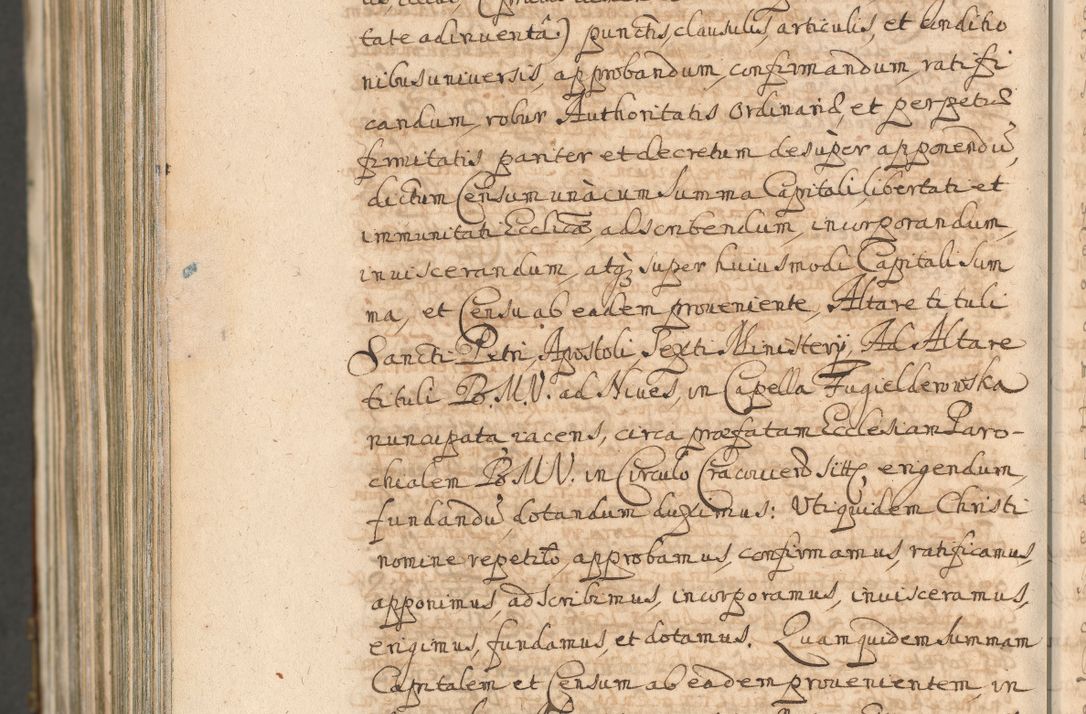 tate adinventâ) punctis, clausulis, articulis, et conditio
nibus universis, approbandum, confirmandum, ratifi
candum, robur Authoritatis Ordinariæ, et perpetuæ
firmitatis pariter et decretum desùper apponendũ,
dictum Censum unà cum Summa Capitali libertati et
immunitati Ecclicæ, adscribendum, incorporandum,
inviscerandum, atqꝫ super huiusmodi Capitali Sum
ma, et Censu ab eadem proveniente, Altare tituli
Sancti Petri Apostoli Sexti Ministerij, Ad Altare
tituli B. M. V. ad Nives, in Capella Fugielderowska
nuncupata iacens, circa præfatam Ecclesiam Paro-
chialem B. M. V. in Circulo Cracovien sitt, erigendum,
fundandũ, dotandum duximus: Uti quidem Christi
nomine repetito, approbamus, confirmamus, ratificamus,
apponimus, adscribimus, incorporamus, invisceramus,
erigimus, fundamus, et dotamus. Quam quidem Summam
Capitalem et Censum ab eadem provenientem, in